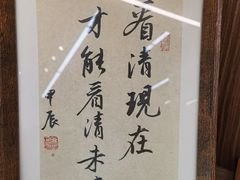 看清現在
才能看清未
甲辰